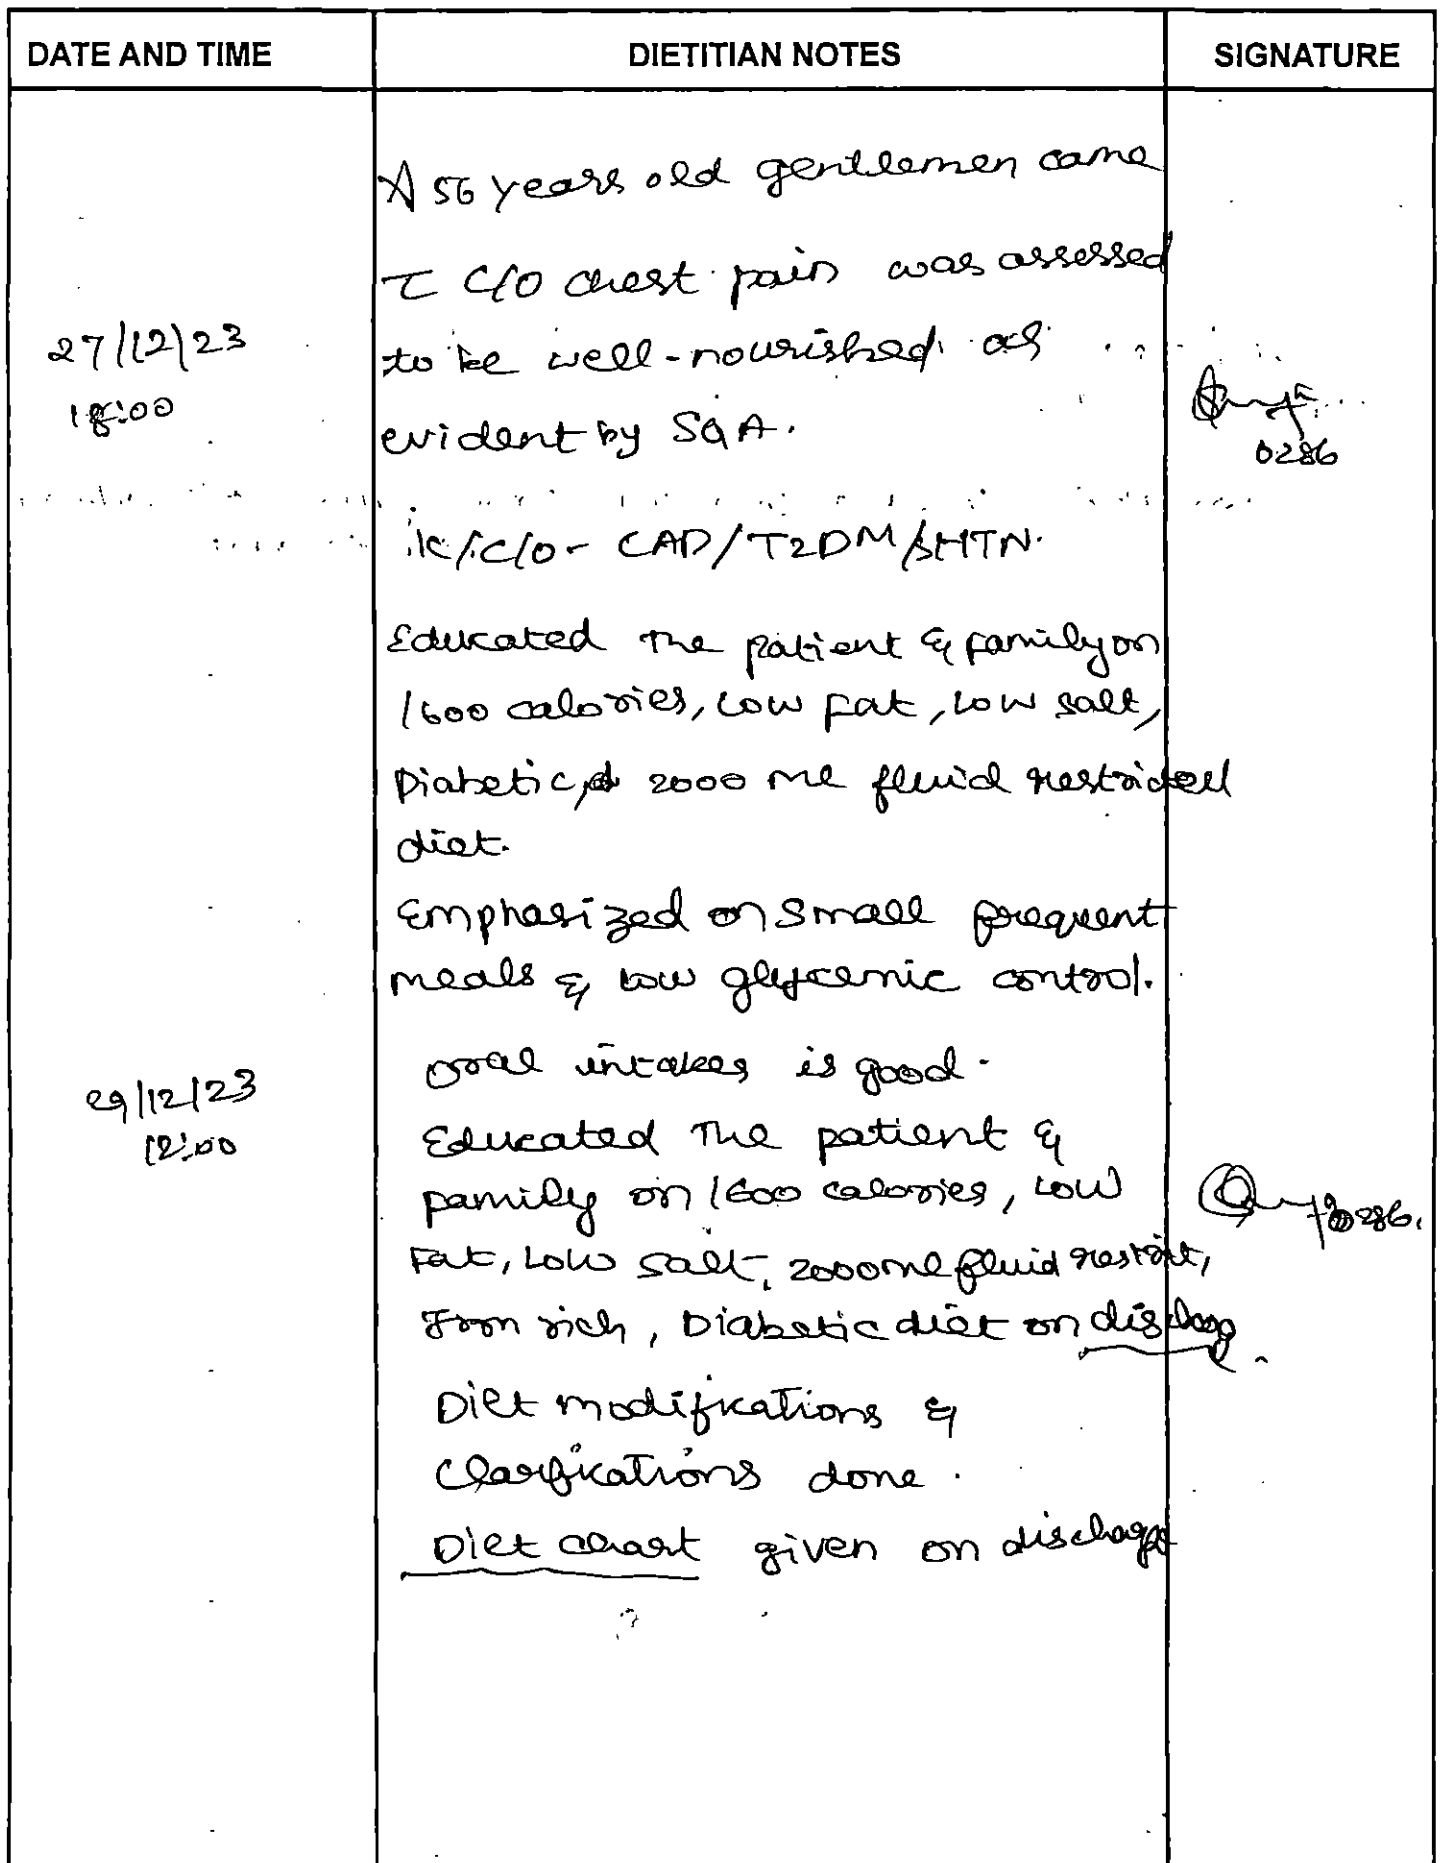 DATE AND TIME
DIETITIAN NOTES
SIGNATURE
A 56 years old gentlemen came
c C/O chest pain was assessed
to be well-nourished as
evident by SGA.
27/12/23
18:00
0286
K/C/O - CAD/T2DM/SHTN.
Educated the patient & family on
1600 calories, low fat, low salt,
Diabetic, 2000 ml fluid restricted
diet.
Emphasized on small frequent
meals & low glycemic control.
29/12/23
12:00
oral intakes is good.
Educated the patient &
family on 1600 calories, low
Fat, Low salt, 2000ml fluid restrict,
Iron rich, Diabetic diet on discharge.
0286.
Diet modifications &
Clarifications done.
Diet chart given on discharge